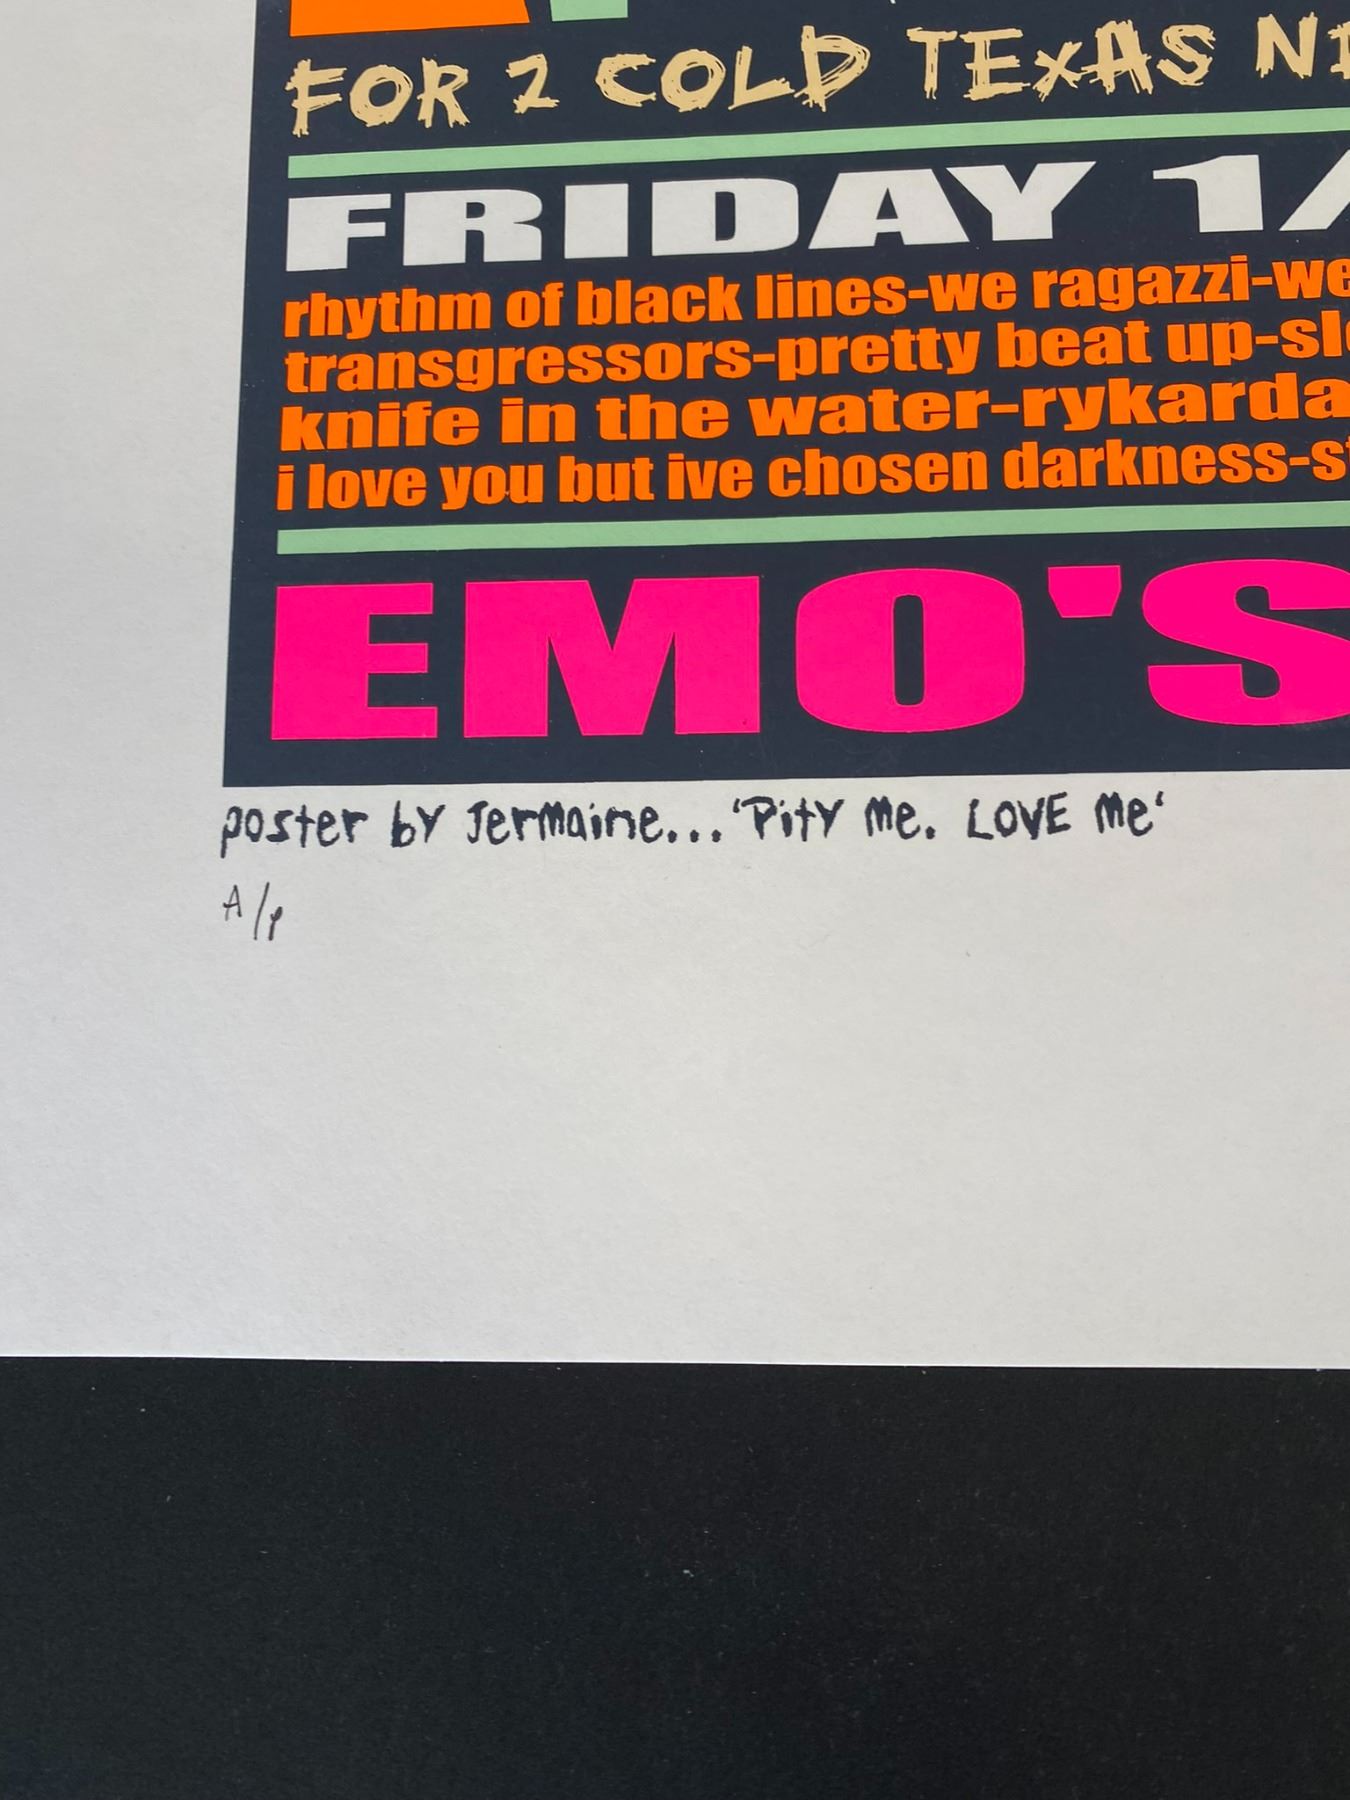 FOR 2 COLD TEXAS
FRIDAY 1/
rhythm of black lines-we ragazzi-we
transgressors-pretty beat up-
knife in the water-rykarda
i love you but ive chosen darkness-
EMO'S
poster by Jermaine...'Pity Me. LOVE Me'
A/P